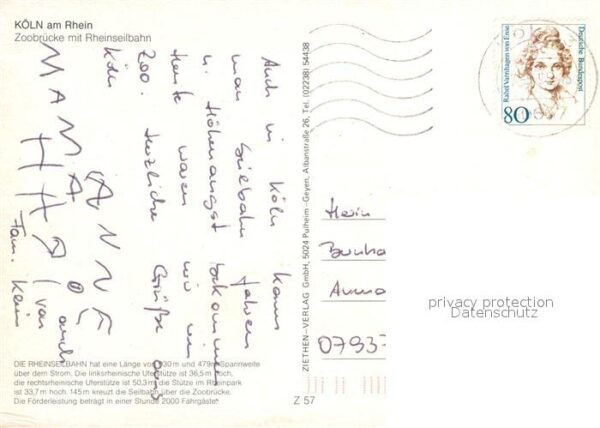 KÖLN am Rhein
Zoobrücke mit Rheinseilbahn
Auch in Köln kann
man Seilbahn fahren
u. Höhenangst bekommen
Heute waren wir im
Zoo. Herzliche Grüße aus
Köln
ANNE
MAMA
auch
(von
Fam. Klein
DIE RHEINSEILBAHN hat eine Länge von 930 m und 479 m Spannweite
über dem Strom. Die linksrheinische Uferstütze ist 36,5 m hoch,
die rechtsrheinische Uferstütze ist 50,3 m die Stütze im Rheinpark
ist 33,7 m hoch. 145 m kreuzt die Seilbahn über die Zoobrücke.
Die Förderleistung beträgt in einer Stunde 2000 Fahrgäste.
ZIETHEN-VERLAG GmbH, 5024 Pulheim-Geyen, Albanstraße 26, Tel. (02238) 54438
Z 57
Rahel Varnhagen von Ense
Deutsche Bundespost
80
Herrn
0793
privacy protection
Datenschutz